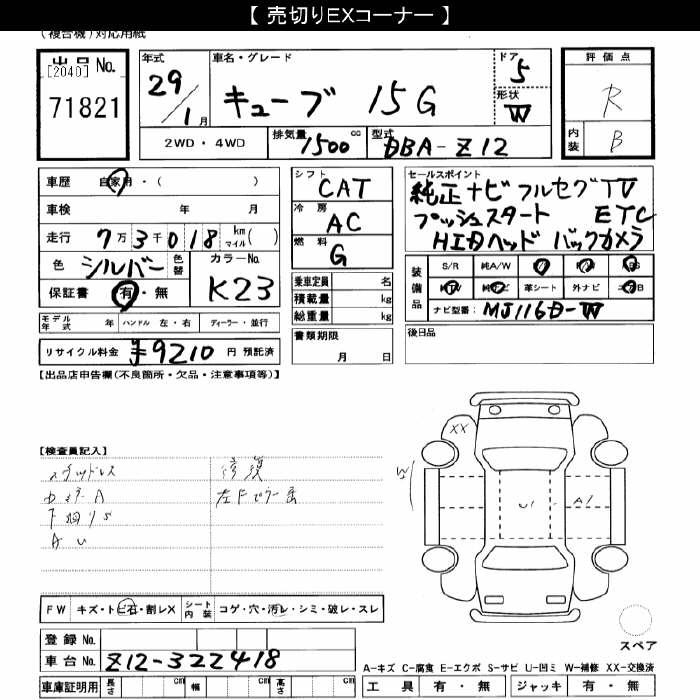 【 売切りEXコーナー 】
(複合機)対応用紙
出品 No.
[2040]
71821
年式
29/1月
車名・グレード
キューブ 15G
ドア
5
形状
W
評価点
R
内装
B
2WD・4WD
排気量
1500 cc
型式
DBA-Z12
車歴 自家用・( )
車検 年 月
走行 7万3千018 km マイル( )
色 シルバー 色替
カラーNo.
K23
保証書 有・無
モデル年式 年 ハンドル 左・右 ディーラー・並行
リサイクル料金 ¥9210 円 預託済
シフト
CAT
冷房
AC
燃料
G
乗車定員 名
積載量 kg
総重量 kg
書類期限
月 日
セールスポイント
純正ナビ フルセグTV
プッシュスタート ETC
HIDヘッド バックカメラ
装備品
S/R 純A/W
革シート 外ナビ
ナビ型番: MJ116D-W
後日品
【出品店申告欄(不良箇所・欠品・注意事項等)】
【検査員記入】
スタッドレス
修復
内装A
左Fピラー
下廻りS
A U
XX
W
U1
A1
FW キズ・トビ石・割レX
シート内装 コゲ・穴・汚レ・シミ・破レ・スレ
登録 No.
車台 No. Z12-322418
車庫証明用 長さ cm 幅 cm 高さ cm
スペア
A-キズ C-腐食 E-エクボ S-サビ U-凹ミ W-補修 XX-交換済
工具 有・無 ジャッキ 有・無